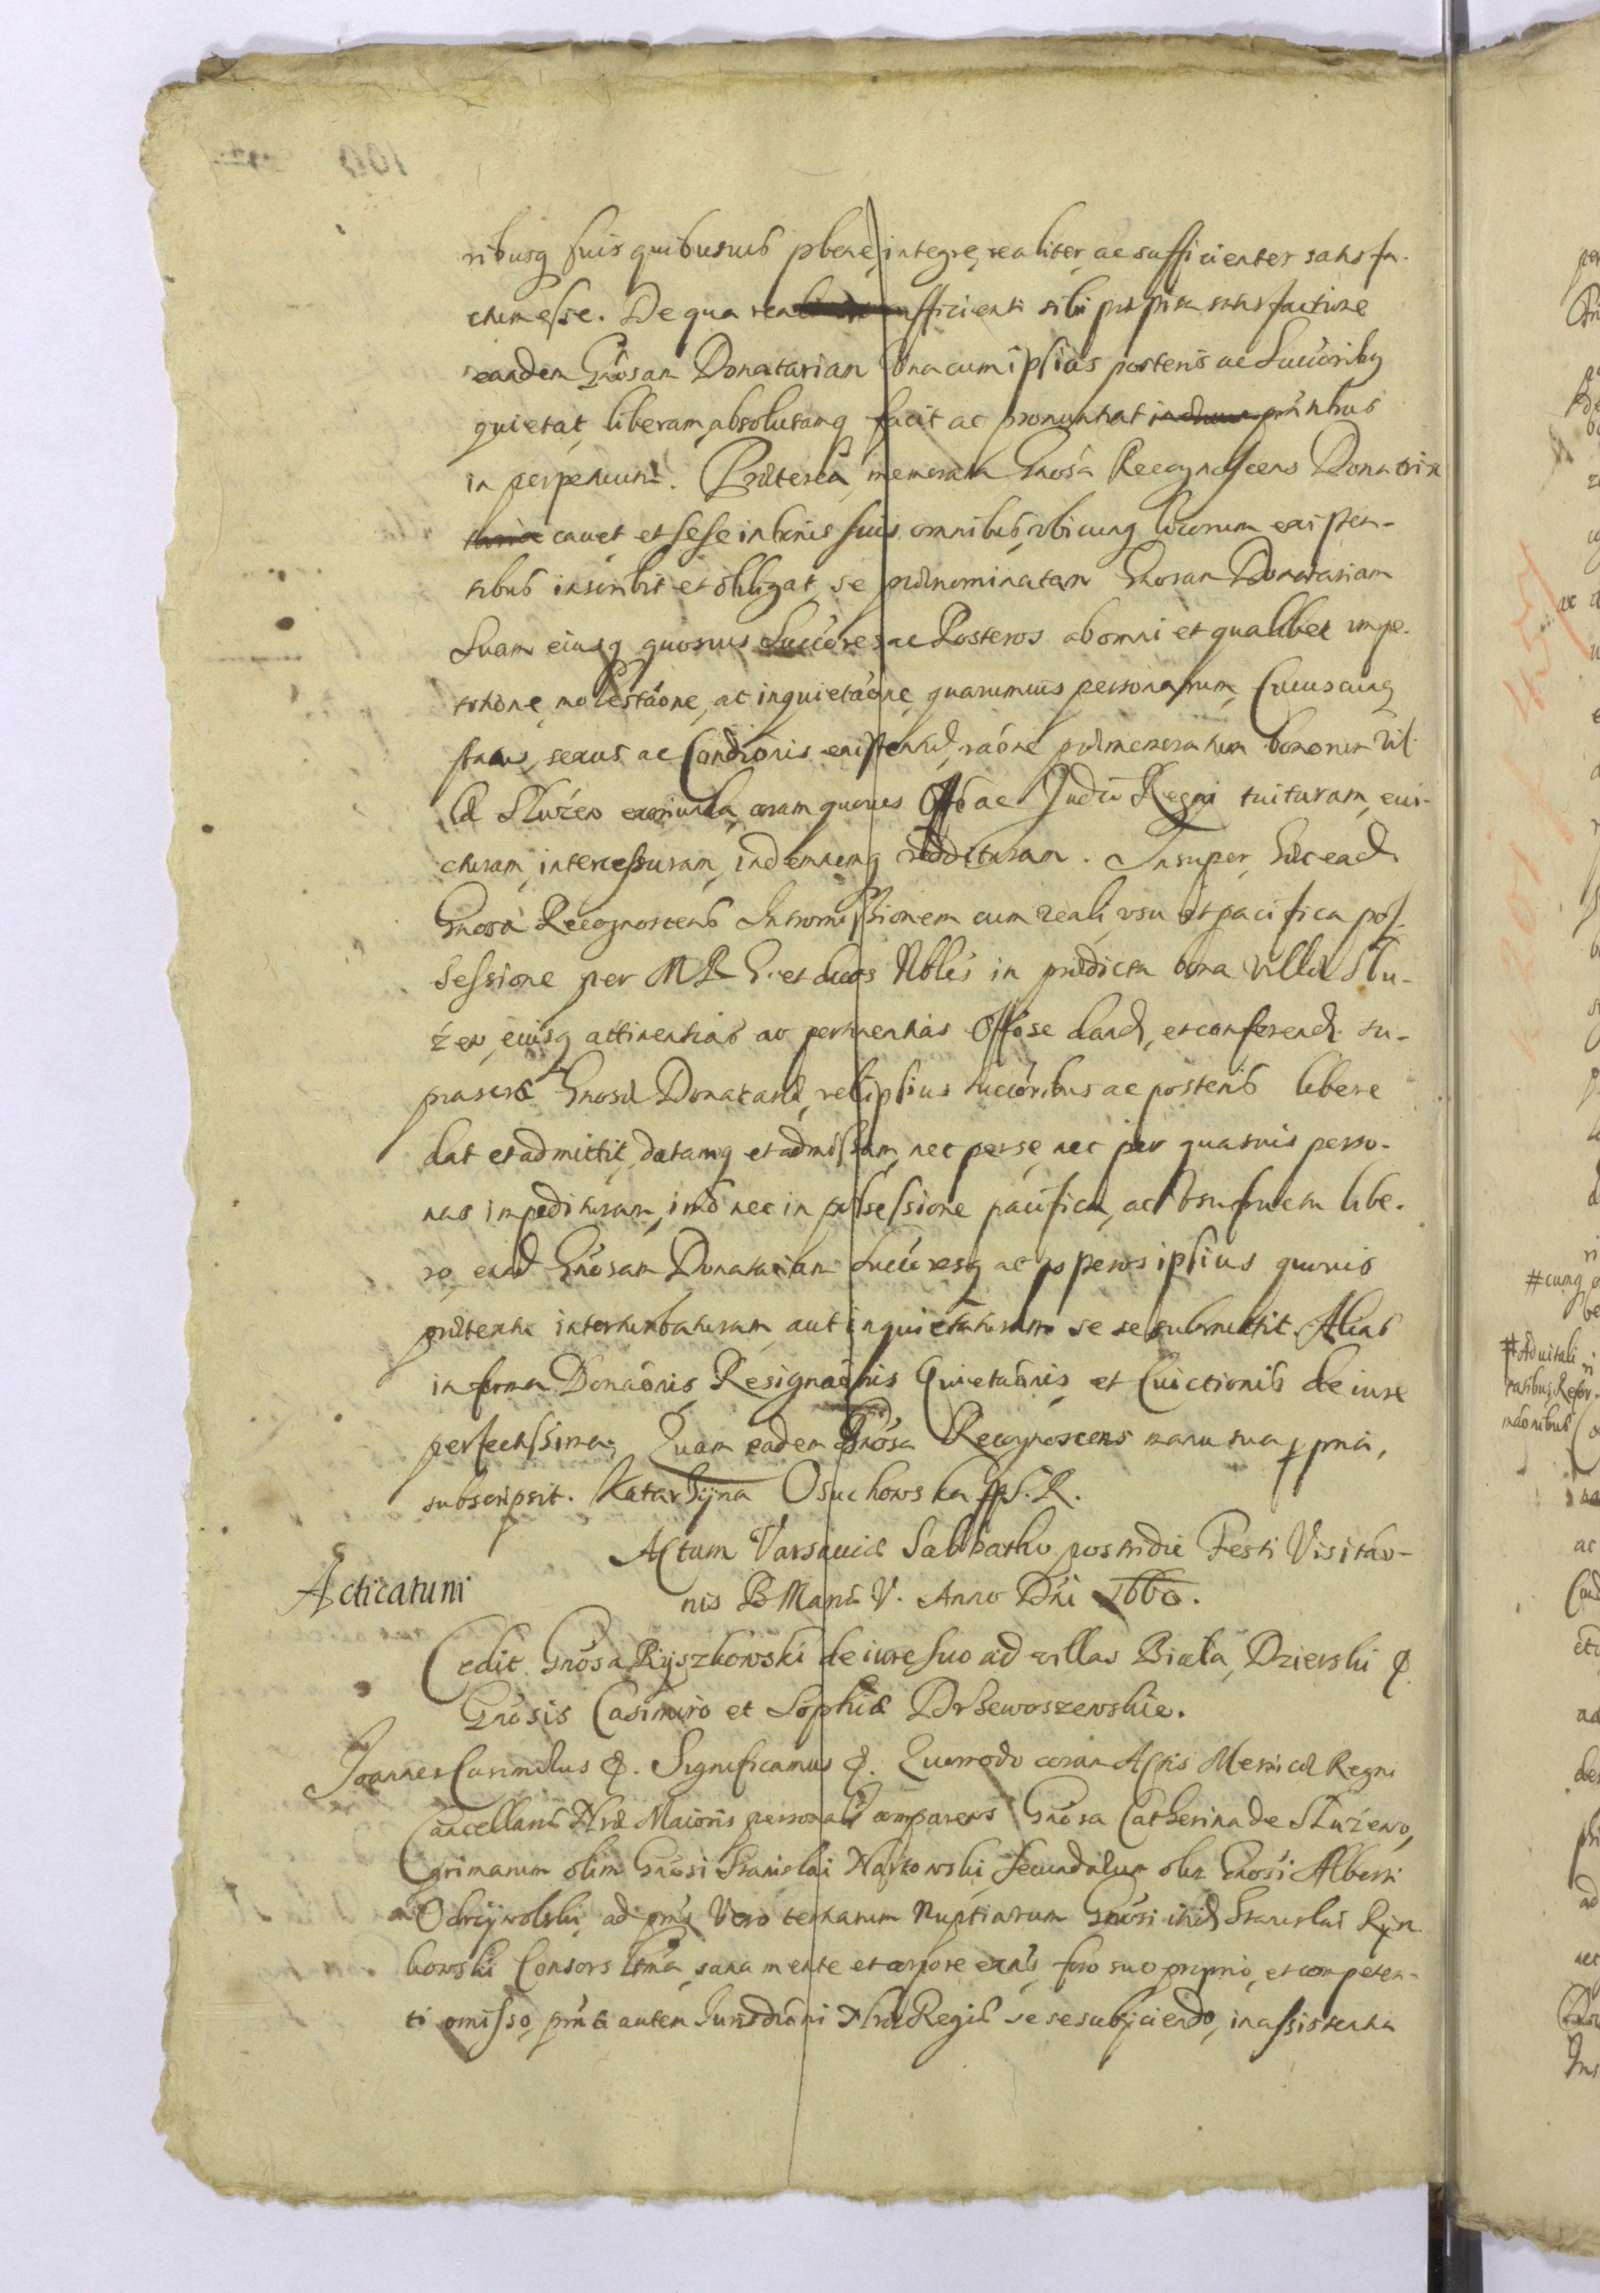 ribusq suis quibusuis plene, integre, realiter, ac sufficienter satisfa-
ctum esse. De qua sufficienti sibi satisfactione
eandem Gnosam Donatariam una cum ipsius posteris ac Succoribq
quietat, liberam, absolutamq facit ac pronunciat
in perpetuum. Praeterea, memorata Gnosa Recognoscens Donatrix
cauet, et sese in bonis suis omnibus, vbicunq locorum existen-
tibus inscribit et obligat, se praenominatam Gnosam Donatariam
Suam eiusq quosuis Succores ac Posteros ab omni et qualibet impe-
titione, molestaone, ac inquietaone, quarumuis personarum, Cuiuscunq
status, sexus ac Condionis existentium, raone praememoratum bonorum Vil-
lae Służew coram quouis Offo ac Judio Regni tuituram, eui-
cturam, intercessuram, indemnemq reddituram. Insuper, haec ead
Gnosa Recognoscens Intromissionem cum reali vsu et pacifica pos-
sessione per M R G. et duos Nobles in praedicta bona villae Słu-
żew, eiusq attinentias ac pertinentias Offose dand, et conferend su-
prascrae Gnosae Donatariae, vel ipsius succoribus ac posteris libere
dat et admittit, datamq et admissam, nec per se, nec per quasuis perso-
nas impedituram, imo nec in possessione pacifica, ac usufructu libe-
ro, eand Gnosam Donatariam Succoresq ac posteros ipsius quouis
praetextu interturbaturam, aut inquietaturam se se submittit. Alias
in forma Donaonis, Resignaonis Quietaonis, et Euictionis de iure
perfectissima. Quam eadem Gnosa Recognoscens manu sua ppria,
subscripsit. Katarzyna Osuchowska
Actum Varsauiae Sabbatho postridie Festi Visitao-
nis B Mariae V. Anno Dni 1660.
Acticatum
Cedit Gnosa Ryszkowski de iure suo ad villas Biała, Dzierski &
Gnosis Casimiro et Sophiae Drzewoszewskie.
Joannes Casimirus &. Significamus &. Quomodo coram Actis Metricae Regni
Cancellariae Nrae Maioris personalr comparens Gnosa Catherina de Służewo,
primarum olim Gnosi Stanislai Narkowski, secundarum olim Gnosi Alberti
Odrzywolski, ad prns Vero tertiarum Nuptiarum Gnosi itid Stanislai Rysz-
kowski Consors ltma, sana mente et corpore exns, foro suo proprio, et competen-
ti omisso, autem Jurisdioni Nrae Regiae se se subjiciendo, in assistentia
#cunq
#Aduitali
tatibus, Refor-
maonibus